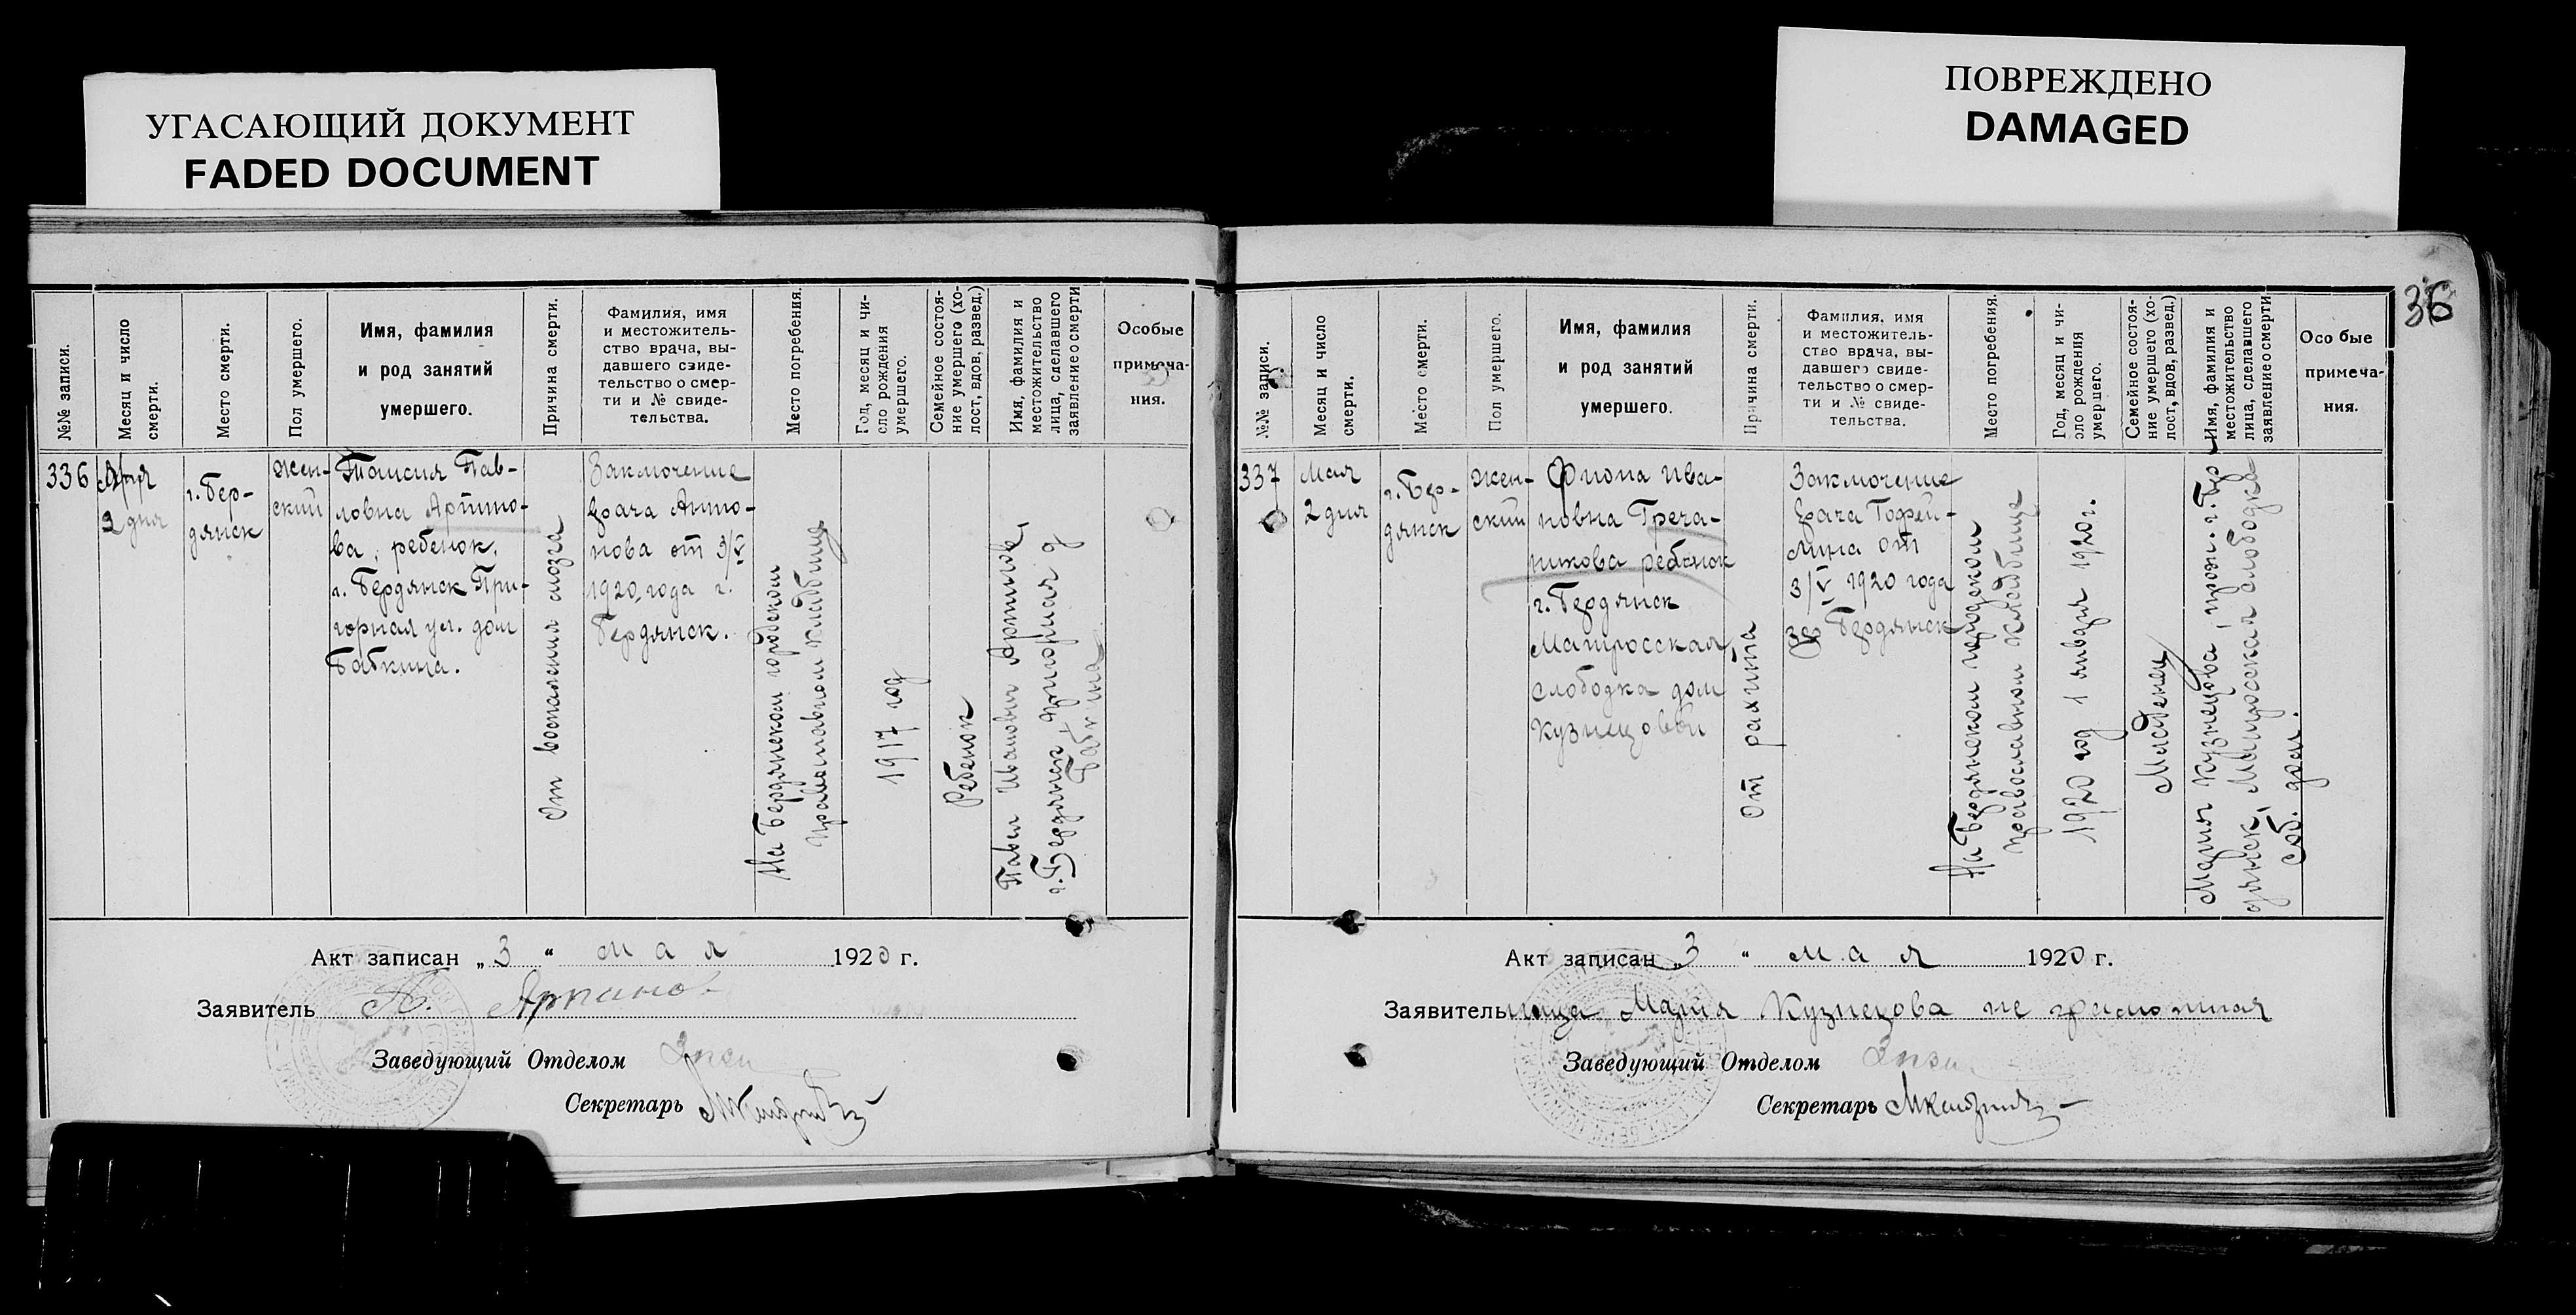 УГАСАЮЩИЙ ДОКУМЕНТ
FADED DOCUMENT
ПОВРЕЖДЕНО
DAMAGED
36
№№ записи.
Месяц и число
смерти.
Место смерти.
Пол умершего.
Имя, фамилия
и род занятий
умершего.
Причина смерти.
Фамилия, имя
и местожитель-
ство врача, вы-
давшего свиде-
тельство о смер-
ти и № свиде-
тельства.
Место погребения.
Год, месяц и чи-
сло рождения
умершего.
Семейное состоя-
ние умершего (хо-
лост, вдов, развед.)
Имя, фамилия и
местожительство
лица, сделавшего
заявление о смерти
Особые
примеча-
ния.
336
2 дня
г. Бер-
дянск
жен-
ский
Таисия Пав-
ловна Артино-
ва, ребенок,
г. Бердянск При-
горная ул. дом
Бабкина.
От воспаления мозга
Заключение
врача Анто-
нова от 3/V
1920 года г.
Бердянск.
На Бердянском городском
православном кладбище
1917 год
Ребенок
Павел Иванович Артинов,
г. Бердянск, Пригорная д
Бабкина
Акт записан „3“ мая 1920 г.
Заявитель А. Артинов
Заведующий Отделом
Секретарь
№№ записи.
Месяц и число
смерти.
Место смерти.
Пол умершего.
Имя, фамилия
и род занятий
умершего.
Причина смерти.
Фамилия, имя
и местожитель-
ство врача, вы-
давшего свиде-
тельство о смер-
ти и № свиде-
тельства.
Место погребения.
Год, месяц и чи-
сло рождения
умершего.
Семейное состоя-
ние умершего (хо-
лост, вдов, развед.)
Имя, фамилия и
местожительство
лица, сделавшего
заявление о смерти
Особые
примеча-
ния.
337
Мая
2 дня
г. Бер-
дянск
жен-
ский
Фиона Ива-
новна Греча-
никова ребенок
г. Бердянск
Матросская
слободка дом
Кузнецовой
От рахита
Заключение
врача Гофей-
лина от
3/V 1920 года
Бердянск
На Бердянском городском
православном кладбище
1920 год 1 января 1920 г.
Младенец
Мария Кузнецова, прож. г. Бер
дянск, Матросская слободка
соб. дом.
Акт записан „3“ мая 1920 г.
Заявительница Мария Кузнецова не грамотная
Заведующий Отделом
Секретарь